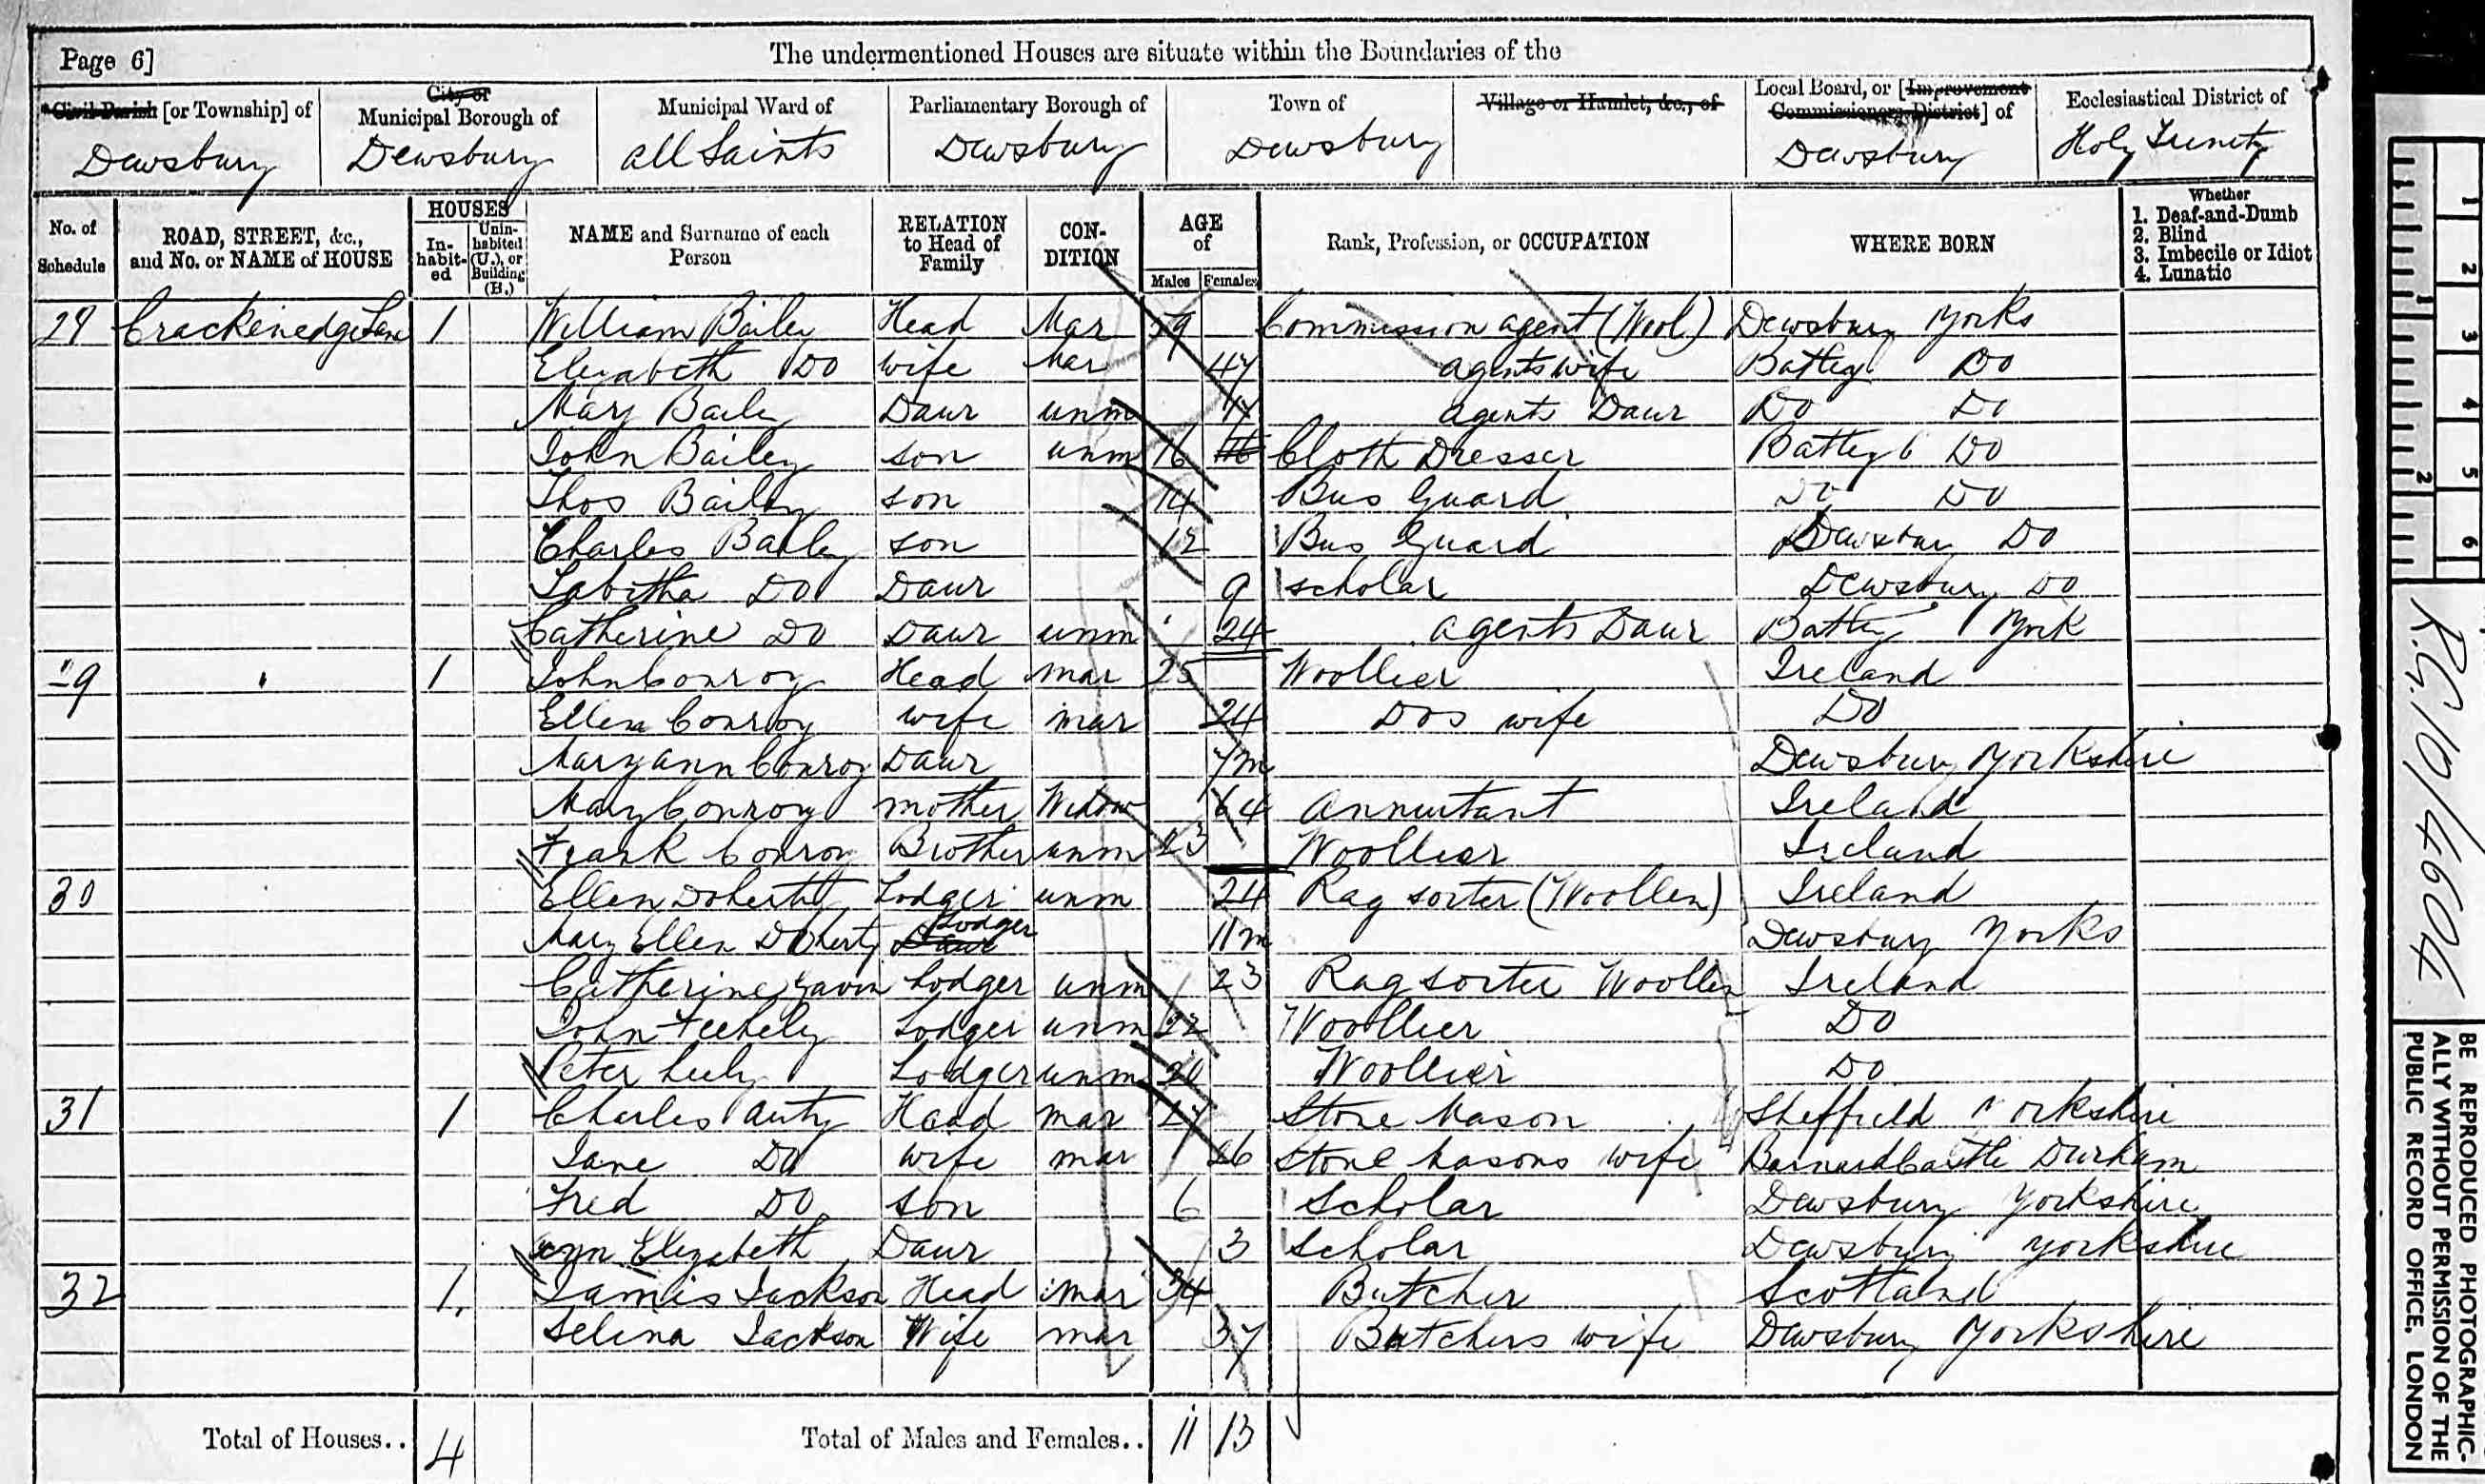 Page 6]
The undermentioned Houses are situate within the Boundaries of the
Civil Parish [or Township] of
City or Municipal Borough of
Municipal Ward of
Parliamentary Borough of
Town of
Village or Hamlet, &c., of
Local Board, or [Improvement Commissioners District] of
Ecclesiastical District of
Dewsbury Dewsbury All Saints Dewsbury Dewsbury Dewsbury Holy Trinity
No. of Schedule
ROAD, STREET, &c., and No. or NAME of HOUSE
HOUSES
In-habit-ed
Unin-habited (U.), or Building (B.)
NAME and Surname of each Person
RELATION to Head of Family
CON-DITION
AGE of
Males Females
Rank, Profession, or OCCUPATION
WHERE BORN
Whether
1. Deaf-and-Dumb
2. Blind
3. Imbecile or Idiot
4. Lunatic
Crackenedge Lane 1 William Bailey Head Mar 59 Commission agent (Wool) Dewsbury Yorks
Elizabeth Do wife Mar 47 agents wife Batley Do
Mary Bailey Daur unm agents Daur Do Do
John Bailey son unm 16 16 Cloth Dresser Batley Do
Thos Bailey son 14 Bus Guard Do Do
Charles Bailey son 12 Bus Guard Dewsbury Do
Tabitha Do Daur 9 scholar Dewsbury Do
Catherine Do Daur unm 24 agents Daur Batley York
29 " 1 John Conroy Head mar 25 Woollier Ireland
Ellen Conroy wife mar 24 Dos wife Do
Mary ann Conroy Daur 7m Dewsbury Yorkshire
Mary Conroy mother Widow 64 Annuitant Ireland
Frank Conroy Brother unm 23 Woollier Ireland
30 Ellen Doherty Lodger unm 24 Rag sorter (Woollen) Ireland
Mary Ellen Doherty Daur Lodger 11m Dewsbury Yorks
Catherine Lodger unm 23 Rag sorter Woollen Ireland
John Feehely Lodger unm 22 Woollier Do
Peter Lodger unm Woollier Do
31 1 Charles Auty Head mar 27 Stone Mason Sheffield Yorkshire
Jane Do wife mar 26 Stone Masons wife Barnard Castle Durham
Fred Do son 6 Scholar Dewsbury Yorkshire
Ann Elizabeth Daur 3 Scholar Dewsbury Yorkshire
32 1 James Jackson Head mar 34 Butcher Scotland
Selina Jackson Wife mar 37 Butchers wife Dewsbury Yorkshire
Total of Houses.. 4 Total of Males and Females.. 11 13
1 2 3 4 5 6
1 2
R.G. 10/4604
BE REPRODUCED PHOTOGRAPHIC-
ALLY WITHOUT PERMISSION OF THE
PUBLIC RECORD OFFICE, LONDON